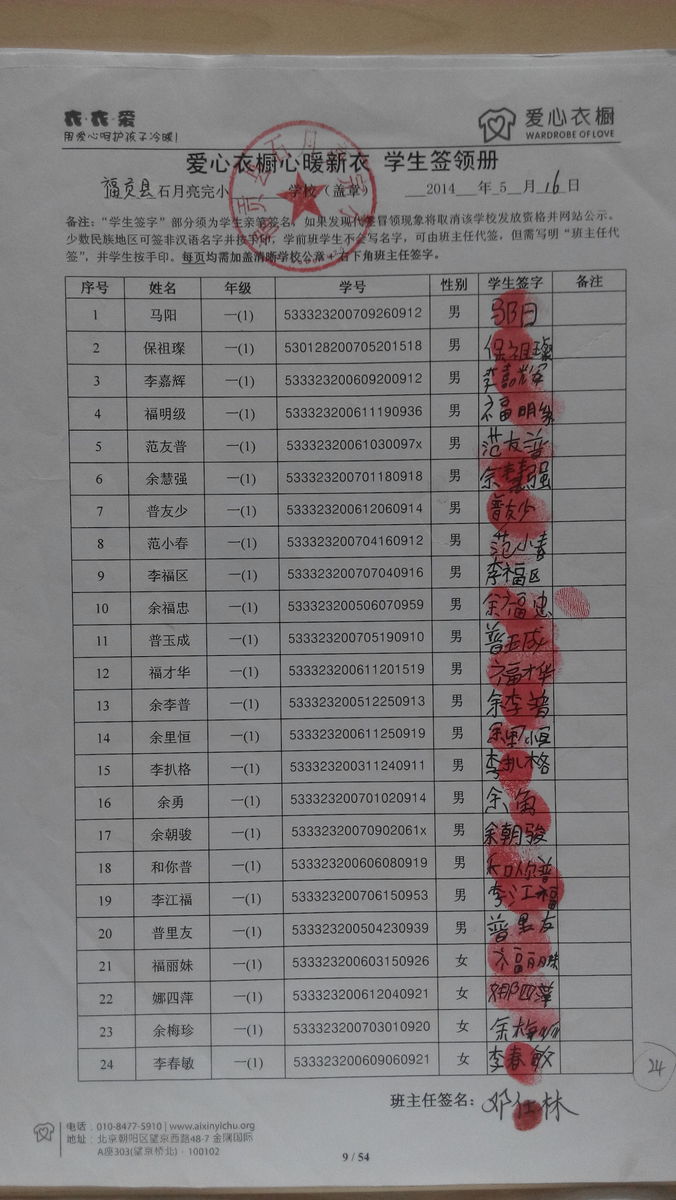 衣·衣·爱
用爱心呵护孩子冷暖!
爱心衣橱
WARDROBE OF LOVE
爱心衣橱心暖新衣 学生签领册
福贡县石月亮完小 学校(盖章) 2014 年 5 月 16 日
备注:“学生签字”部分须为学生亲笔签名,如果发现代签冒领现象将取消该学校发放资格并网站公示。
少数民族地区可签非汉语名字并按手印,学前班学生不会写名字,可由班主任代签,但需写明“班主任代
签”,并学生按手印。每页均需加盖清晰学校公章+右下角班主任签字。
序号 姓名 年级 学号 性别 学生签字 备注
1 马阳 一(1) 533323200709260912 男
2 保祖璨 一(1) 530128200705201518 男 保祖璨
3 李嘉辉 一(1) 533323200609200912 男 李嘉辉
4 福明级 一(1) 533323200611190936 男 福明级
5 范友普 一(1) 53332320061030097x 男 范友普
6 余慧强 一(1) 533323200701180918 男 余慧强
7 普友少 一(1) 533323200612060914 男 普友少
8 范小春 一(1) 533323200704160912 男 范小春
9 李福区 一(1) 533323200707040916 男 李福区
10 余福忠 一(1) 533323200506070959 男 余福忠
11 普玉成 一(1) 533323200705190910 男 普玉成
12 福才华 一(1) 533323200611201519 男 福才华
13 余李普 一(1) 533323200512250913 男 余李普
14 余里恒 一(1) 533323200611250919 男 余里恒
15 李扒格 一(1) 533323200311240911 男 李扒格
16 余勇 一(1) 533323200701020914 男 余勇
17 余朝骏 一(1) 53332320070902061x 男 余朝骏
18 和你普 一(1) 533323200606080919 男 和你普
19 李江福 一(1) 533323200706150953 男 李江福
20 普里友 一(1) 533323200504230939 男 普里友
21 福丽妹 一(1) 533323200603150926 女 福丽妹
22 娜四萍 一(1) 533323200612040921 女 娜四萍
23 余梅珍 一(1) 533323200703010920 女 余梅珍
24 李春敏 一(1) 533323200609060921 女 李春敏
24
班主任签名: 邓仕林
电话:010-8477-5910 | www.aixinyichu.org
地址:北京朝阳区望京西路48-7 金隅国际
A座303(望京桥北)· 100102
9 / 54